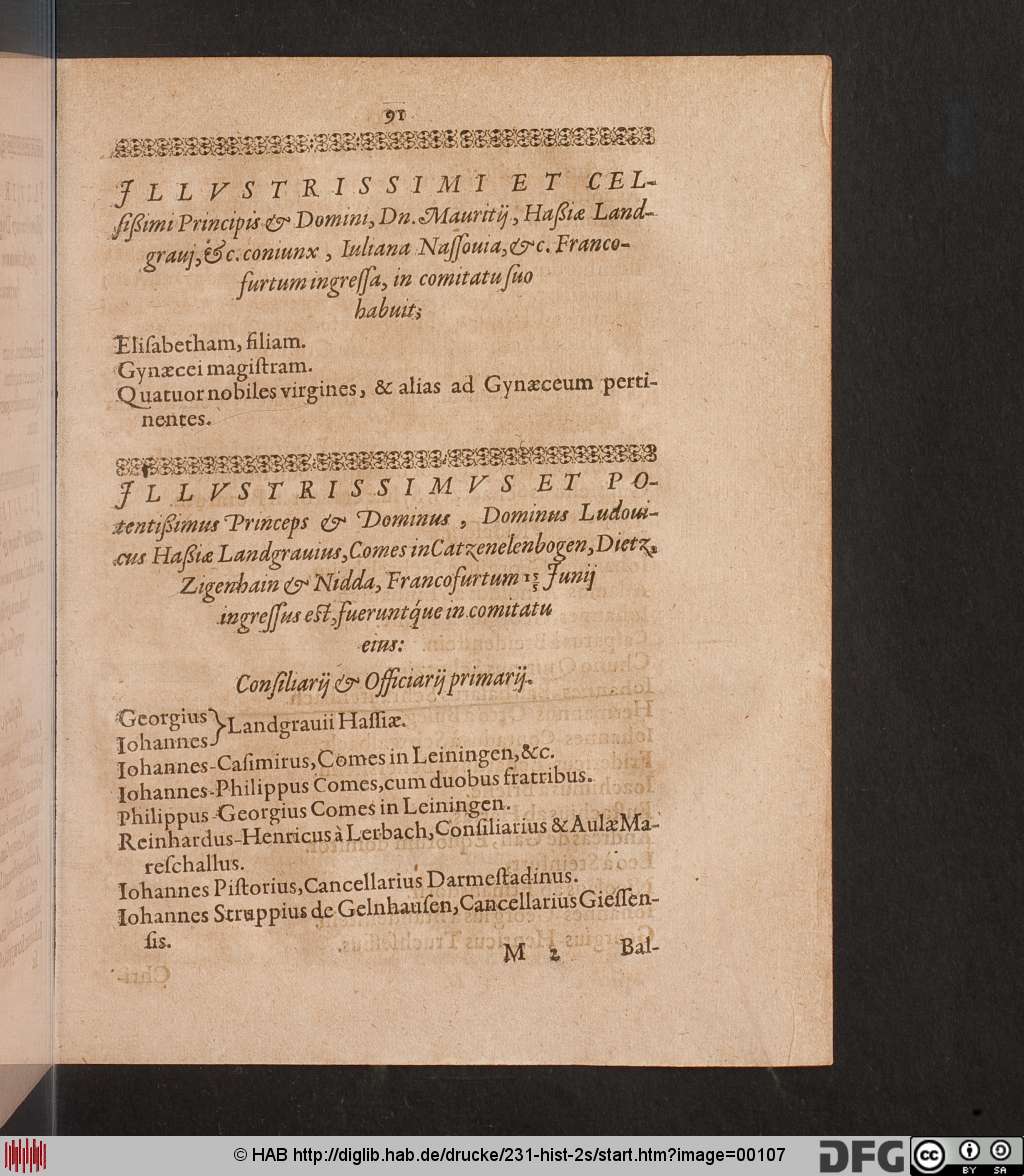 91
ILLVSTRISSIMI ET CEL-
ſißimi Principis & Domini, Dn. Mauritij, Haßiæ Land-
grauj, &c. coniunx, Iuliana Naſſouia, &c. Franco-
furtum ingreſſa, in comitatu ſuo
habuit;
Eliſabetham, filiam.
Gynæcei magiſtram.
Quatuor nobiles virgines, & alias ad Gynæceum perti-
nentes.
ILLVSTRISSIMVS ET PO-
tentißimus Princeps & Dominus, Dominus Ludoui-
cus Haßiæ Landgrauius, Comes in Catzenelenbogen, Dietz,
Zigenhain & Nidda, Francofurtum 15/5 Junij
ingreſſus eſt, fueruntq́ue in comitatu
eius:
Conſiliarij & Officiarij primarij.
Georgius
Iohannes } Landgrauii Haſſiæ.
Iohannes-Caſimirus, Comes in Leiningen, &c.
Iohannes-Philippus Comes, cum duobus fratribus.
Philippus-Georgius Comes in Leiningen.
Reinhardus-Henricus à Lerbach, Conſiliarius & Aulæ Ma-
reſchallus.
Iohannes Piſtorius, Cancellarius Darmeſtadinus.
Iohannes Struppius de Gelnhauſen, Cancellarius Gieſſen-
ſis.
M 2 Bal-
© HAB http://diglib.hab.de/drucke/231-hist-2s/start.htm?image=00107
DFG
cc
BY SA